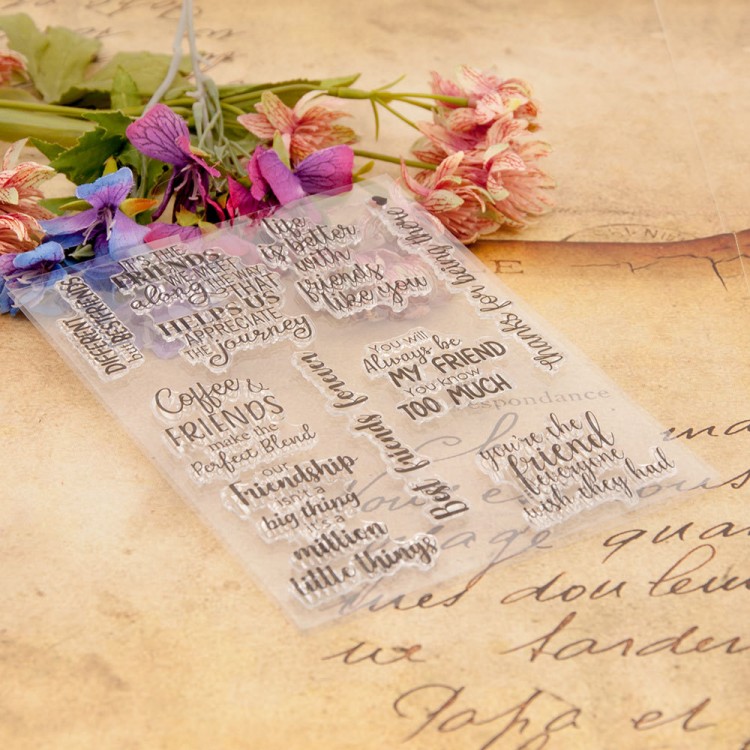 DIFFERENT
but
BEST FRIENDS
IT'S THE
FRIENDS
WE MEET
along
THE WAY
THAT
HELPS US
APPRECIATE
THE journey
life
is better
with
friends
like you
thanks for being there
You will
Always be
MY FRIEND
You know
TOO MUCH
Coffee &
FRIENDS
make the
Perfect Blend
Best friends forever
our
Friendship
isn't a
big thing
it's a
million
little things
you're the
friend
everyone
wish they had
E
espondance
ma
ous
qua
dou leu
ve tarder
Papa et